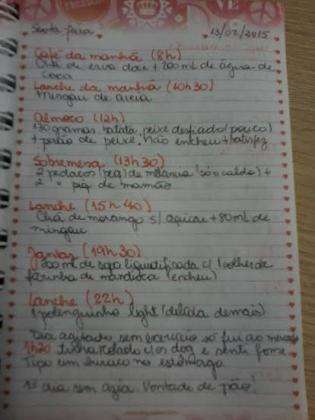 Sexta feira 13/02/2015
Café da manhã (8h)
Chá de erva doce + 200 ml de água de
coco
Lanche da manhã (10h30)
Mingau de aveia
Almoço (12h)
130 gramas batata, peixe desfiado (pouco)
+ pirão de peixe. Não encheu + satisfez
Sobremesa (13h30)
2 pedaços (peq) de melancia (só o caldo) +
2 " peq de mamão
Lanche (15h40)
Chá de morango s/ açúcar + 80ml de
mingau
Jantar (19h30)
200 ml de sopa liquidificada c/ 1 colher de
farinha de mandioca (encheu)
Lanche (22h)
1 polenguinho light (delícia demais)
Dia agitado sem exercício só fui ao mercado
1h20 dog e senti fome
Tipo um buraco no estômago
1º dia sem Vontade de pão